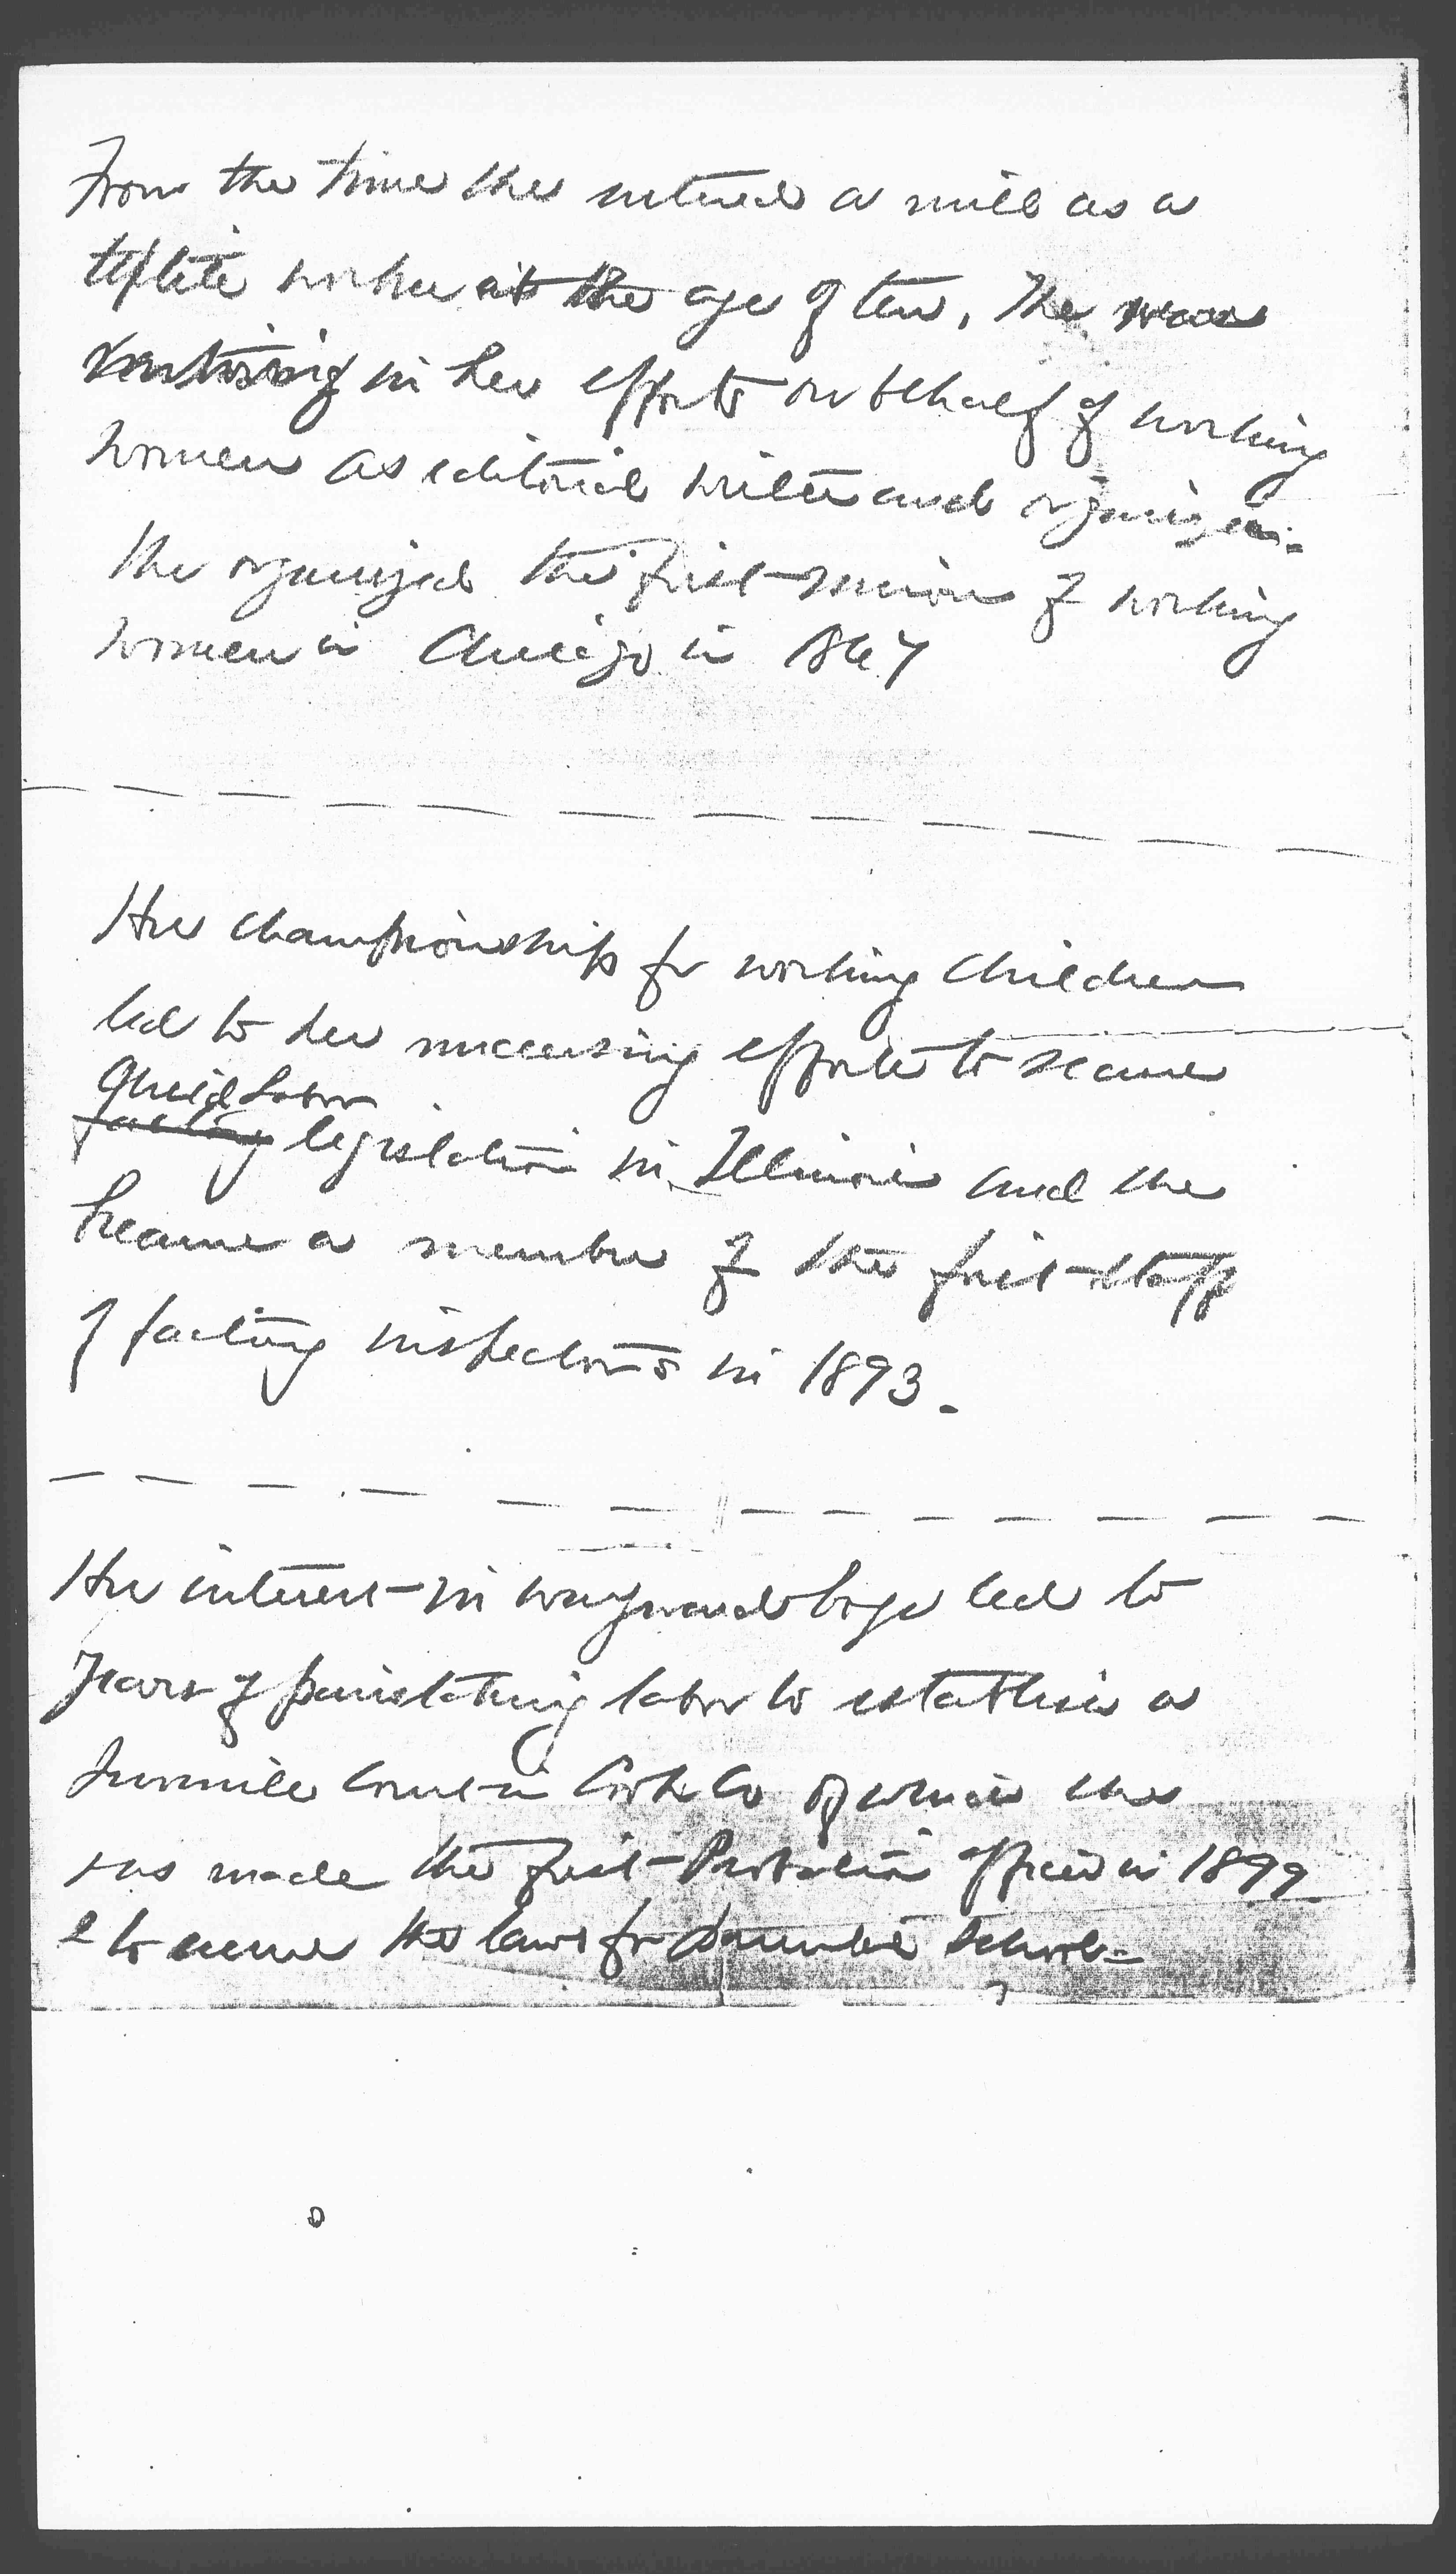 From the time she entered a mill as a
textile worker at the age of ten, she was
untiring in her efforts on behalf of working
women as editorial writer and organizer.
She organized the first union of working
women in Chicago in 1867
Her championship for working children
led to her unceasing efforts to secure
Child Labor
factory legislation in Illinois and she
became a member of the first staff
of factory inspectors in 1893.
Her interest in wayward boys led to
years of painstaking labor to establish a
Juvenile Court in Cook Co of which she
was made the first Probation officer in 1899
& to secure the laws for Parental Schools